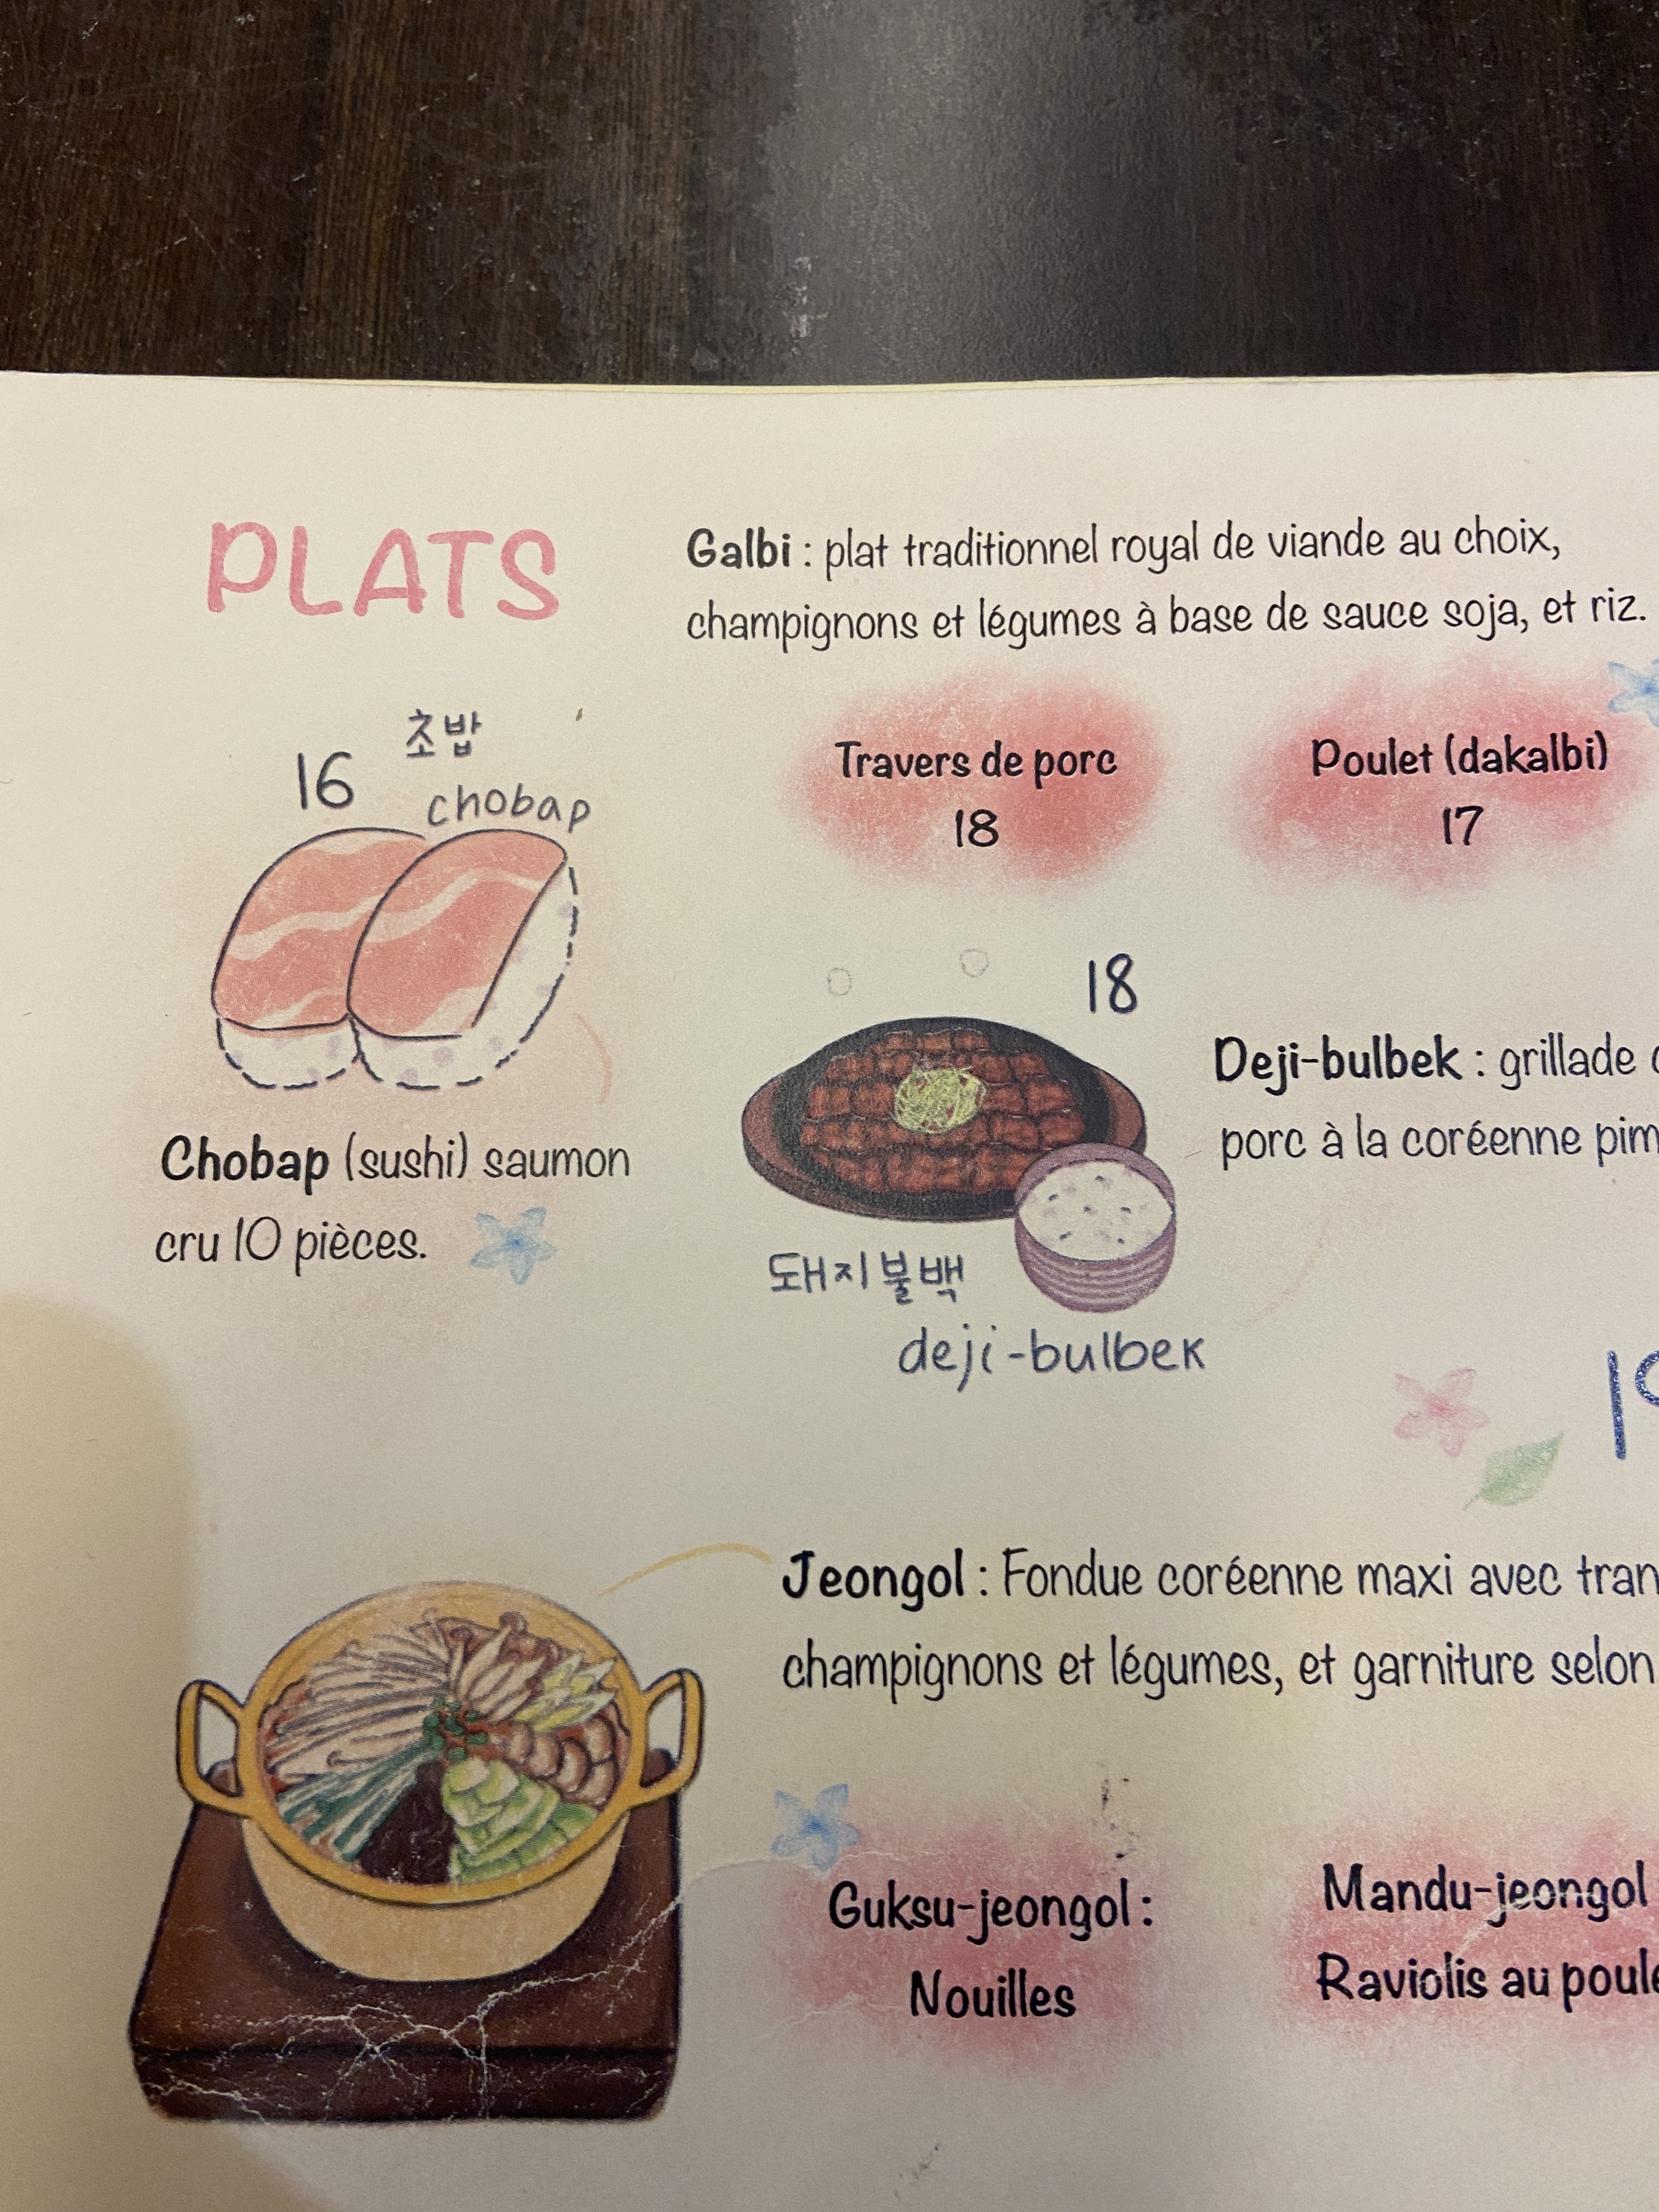 PLATS
Galbi : plat traditionnel royal de viande au choix,
champignons et légumes à base de sauce soja, et riz.
Travers de porc
18
Poulet (dakalbi)
17
16
초밥
chobap
Chobap (sushi) saumon
cru 10 pièces.
18
Deji-bulbek : grillade
porc à la coréenne
돼지불백
deji-bulbek
Jeongol : Fondue coréenne maxi avec
champignons et légumes, et garniture selon
Guksu-jeongol :
Nouilles
Mandu-jeongol
Raviolis au